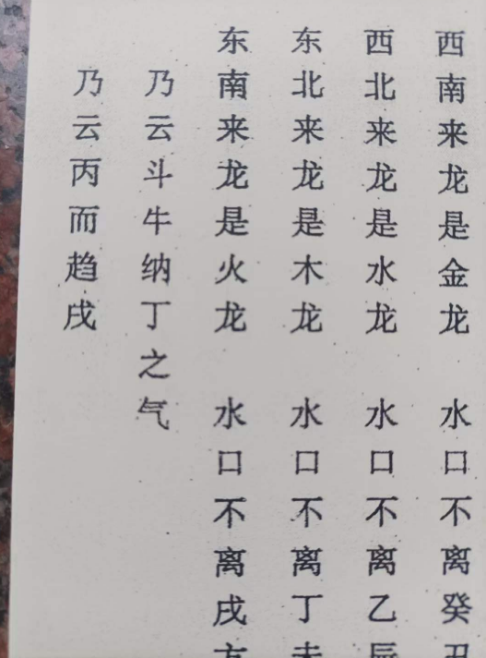 西南来龙是金龙 水口不离癸丑
西北来龙是水龙 水口不离乙辰
东北来龙是木龙 水口不离丁未
东南来龙是火龙 水口不离戌方
乃云斗牛纳丁之气
乃云丙而趋戌